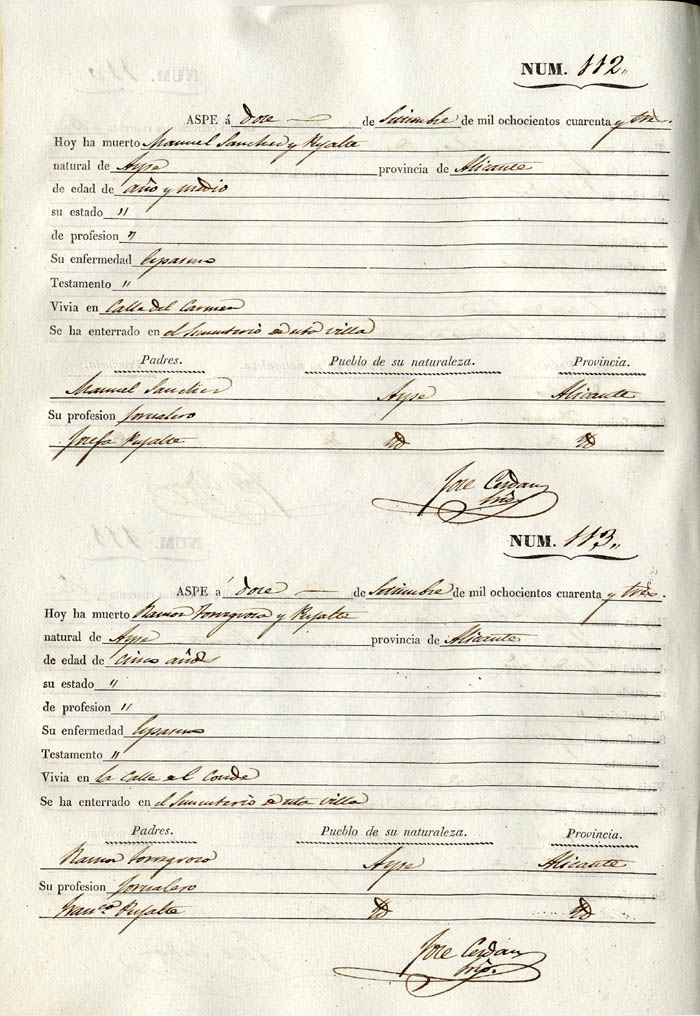 NUM. 112„
ASPE á doce de Setiembre de mil ochocientos cuarenta y tres.
Hoy ha muerto Manuel Sanchez y Pujalte
natural de Aspe provincia de Alicante
de edad de año y medio
su estado „
de profesion „
Su enfermedad Espasmo
Testamento „
Vivia en Calle del Carmen
Se ha enterrado en el Sementerio de esta villa
Padres. Pueblo de su naturaleza. Provincia.
Manuel Sanchez Aspe Alicante
Su profesion Jornalero
Josefa Pujalte Id Id
Jose Cerdan
NUM. 113„
ASPE á doce de Setiembre de mil ochocientos cuarenta y tres.
Hoy ha muerto Ramon Torregrosa y Pujalte
natural de Aspe provincia de Alicante
de edad de cinco años
su estado „
de profesion „
Su enfermedad Espasmo
Testamento „
Vivia en la Calle el Conde
Se ha enterrado en el Sementerio de esta villa
Padres. Pueblo de su naturaleza. Provincia.
Ramon Torregroso Aspe Alicante
Su profesion Jornalero
Fran.ca Pujalte Id Id
Jose Cerdan